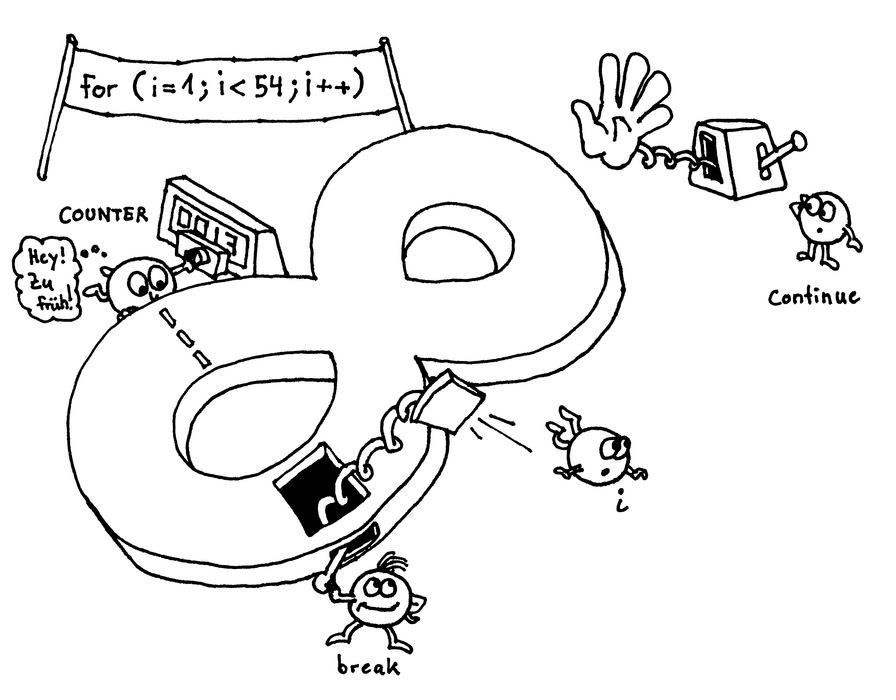 for (i=1; i<54; i++)
COUNTER
Hey!
Zu
früh!
Continue
i
break